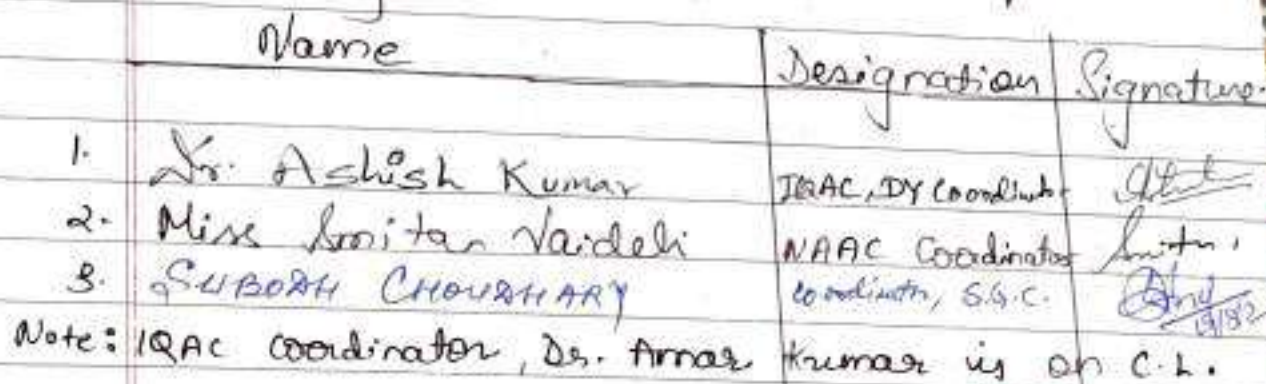 Name Designation Signature.
1. Dr. Ashish Kumar IQAC, DY Coordinator
2. Miss Smita Vaideli NAAC Coordinator Smita
3. SUBODH CHOUDHARY coordinator, S.G.C.
Note: IQAC coordinator, Dr. Amar Kumar is on C.L.